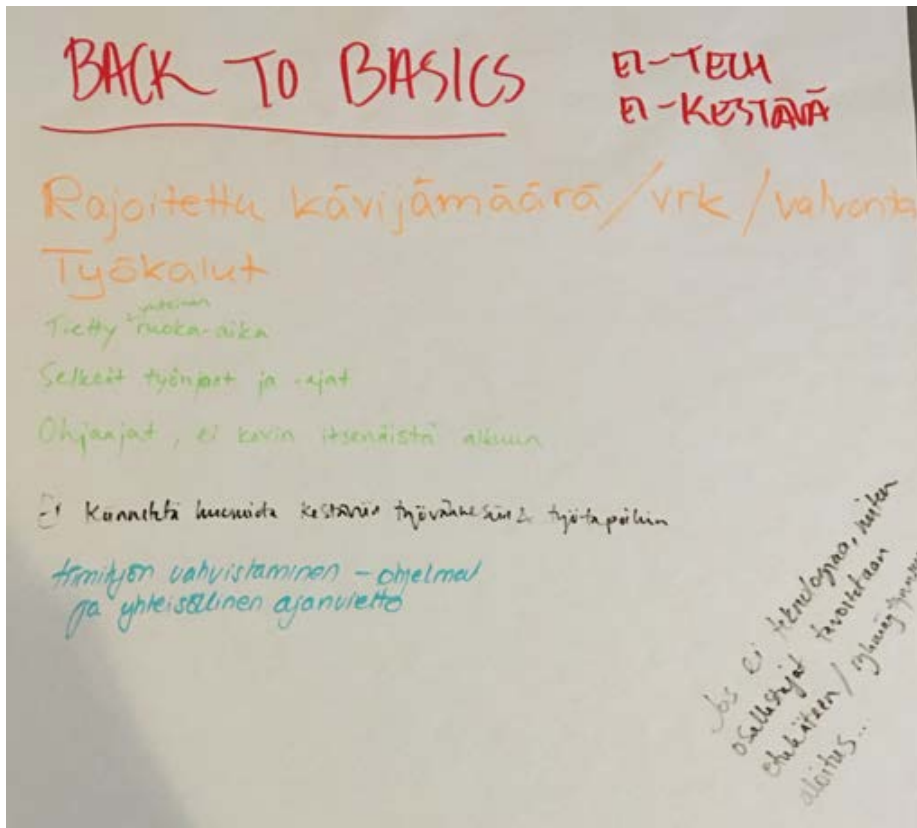 BACK TO BASICS
EI-TECH
EI-KESTÄVÄ
Rajoitettu kävijämäärä/vrk/valvonta
Työkalut
yhteinen
Tietty ruoka-aika
Selkeät työnjaot ja -ajat
Ohjaajat, ei kovin itsenäistä alkuun
Ei kannehta huomiota kestäviin työvälineisiin & työtapoihin
tiimityön vahvistaminen - ohjelmat
ja yhteisöllinen ajanvietto
Jos ei teknologiaa, miten
osallistujat tavoitetaan
etukäteen / ryhmäytyminen
aloitus...